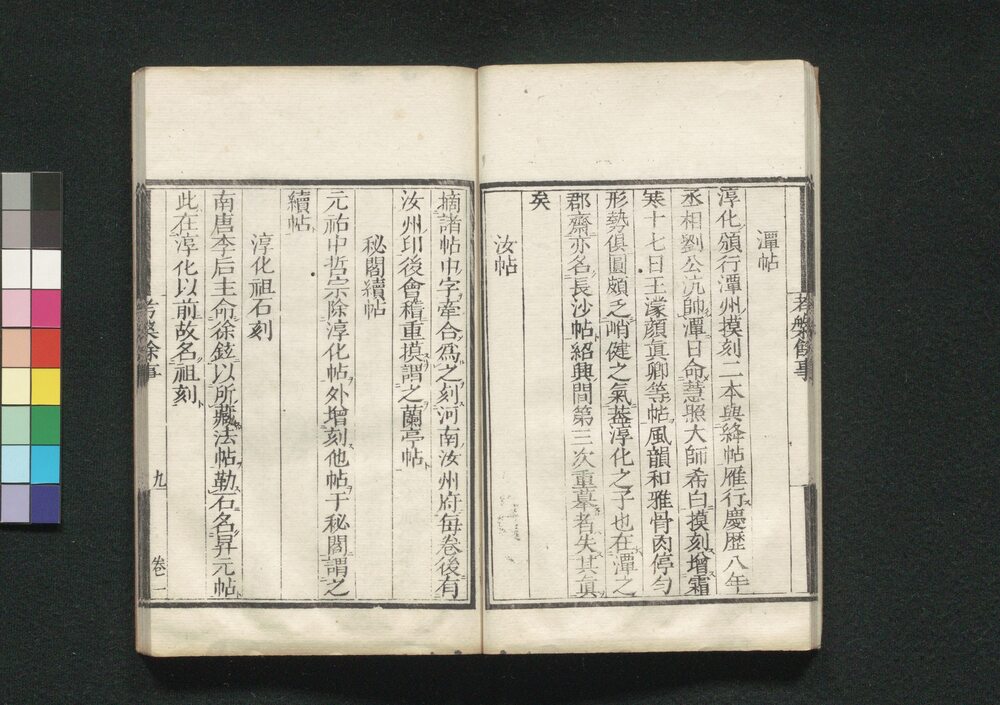 考槃餘事
潭帖
淳化頒行潭州摸刻二本與絳帖雁行慶歴八年
丞相劉公沆帥潭日命慧照大師希白摸刻增霜
寒十七日王濛顔真卿等帖風韻和雅骨肉停勻
形勢俱圓頗乏峭健之氣葢淳化之子也在潭之
郡齋亦名長沙帖紹興間第三次重摹者失其眞
矣
汝帖
摘諸帖中字牽合爲之刻河南汝州府每卷後有
汝州印後會稽重摸謂之蘭亭帖
秘閣續帖
元祐中哲宗除淳化帖外增刻他帖于秘閣謂之
續帖
淳化祖石刻
南唐李后主命徐鉉以所藏法帖勒石名昇元帖
此在淳化以前故名祖刻
考槃餘事 九 卷一